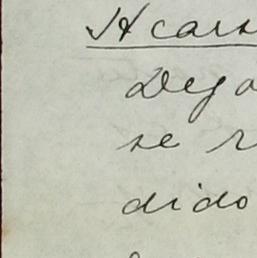 Acaus
Deja
se r
dido